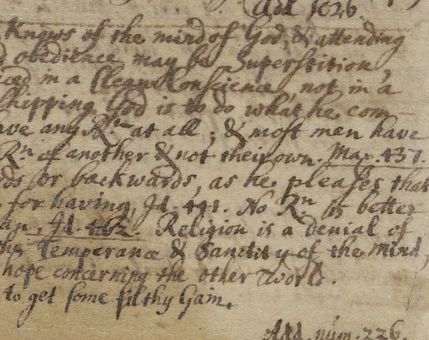 Add 1026.
Knows of the mind of God, & attending
obedience may be Superstition,
in a Clean Conscience, not in a
Shipping God is to do what he com-
ave any Rn at all; & most men have
Rn of another & not their own. Max. 437.
ds or backwards, as he pleases that
for having, Id. 441. No Rn is better
Id. 462. Religion is a denial of
the Temperance & Sanctity of the mind,
hope concerning the other World.
to get some filthy Gain.
Add. num. 226.